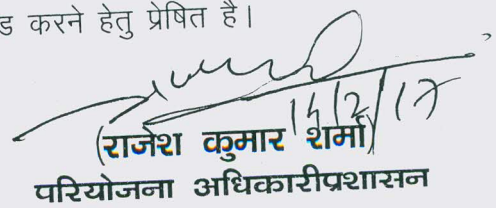 ड करने हेतु प्रेषित है।
14/2/17
(राजेश कुमार शर्मा)
परियोजना अधिकारीप्रशासन